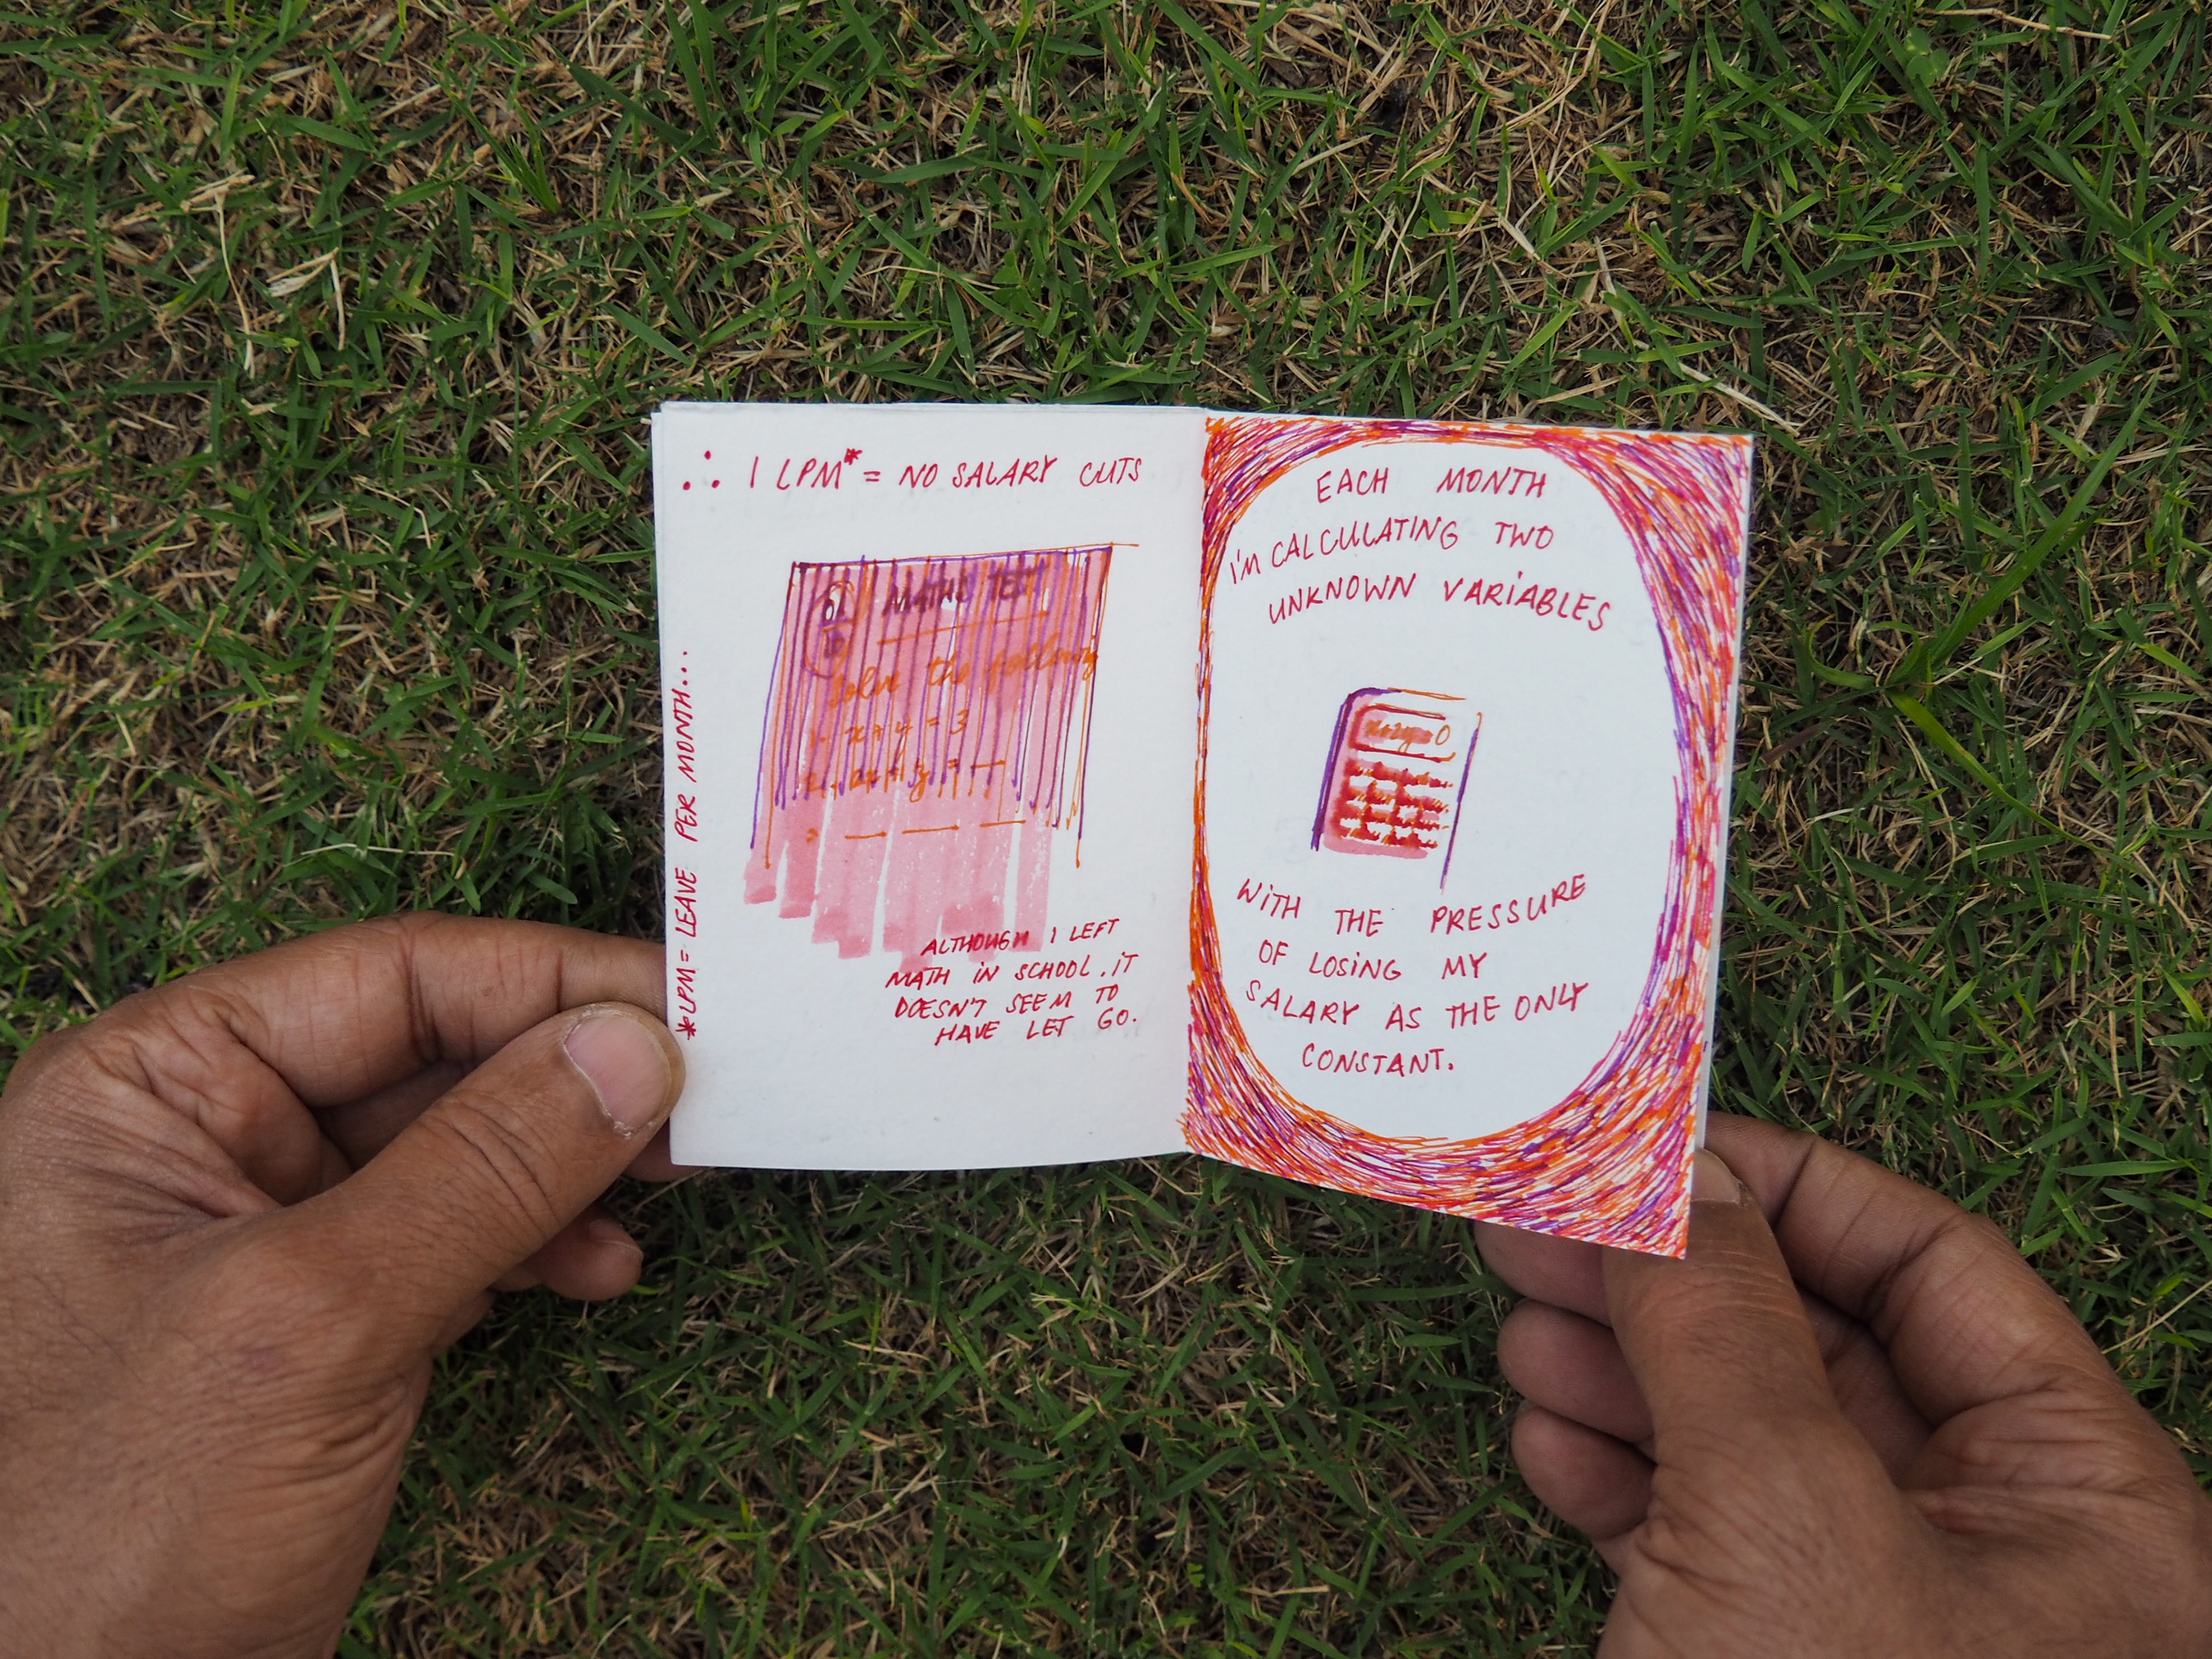 ∴ 1 LPM* = NO SALARY CUTS
MATHS TEST
Solve the following
1. x + y = 3
ALTHOUGH I LEFT
MATH IN SCHOOL, IT
DOESN'T SEEM TO
HAVE LET GO.
*LPM = LEAVE PER MONTH...
EACH MONTH
I'M CALCULATING TWO
UNKNOWN VARIABLES
WITH THE PRESSURE
OF LOSING MY
SALARY AS THE ONLY
CONSTANT.